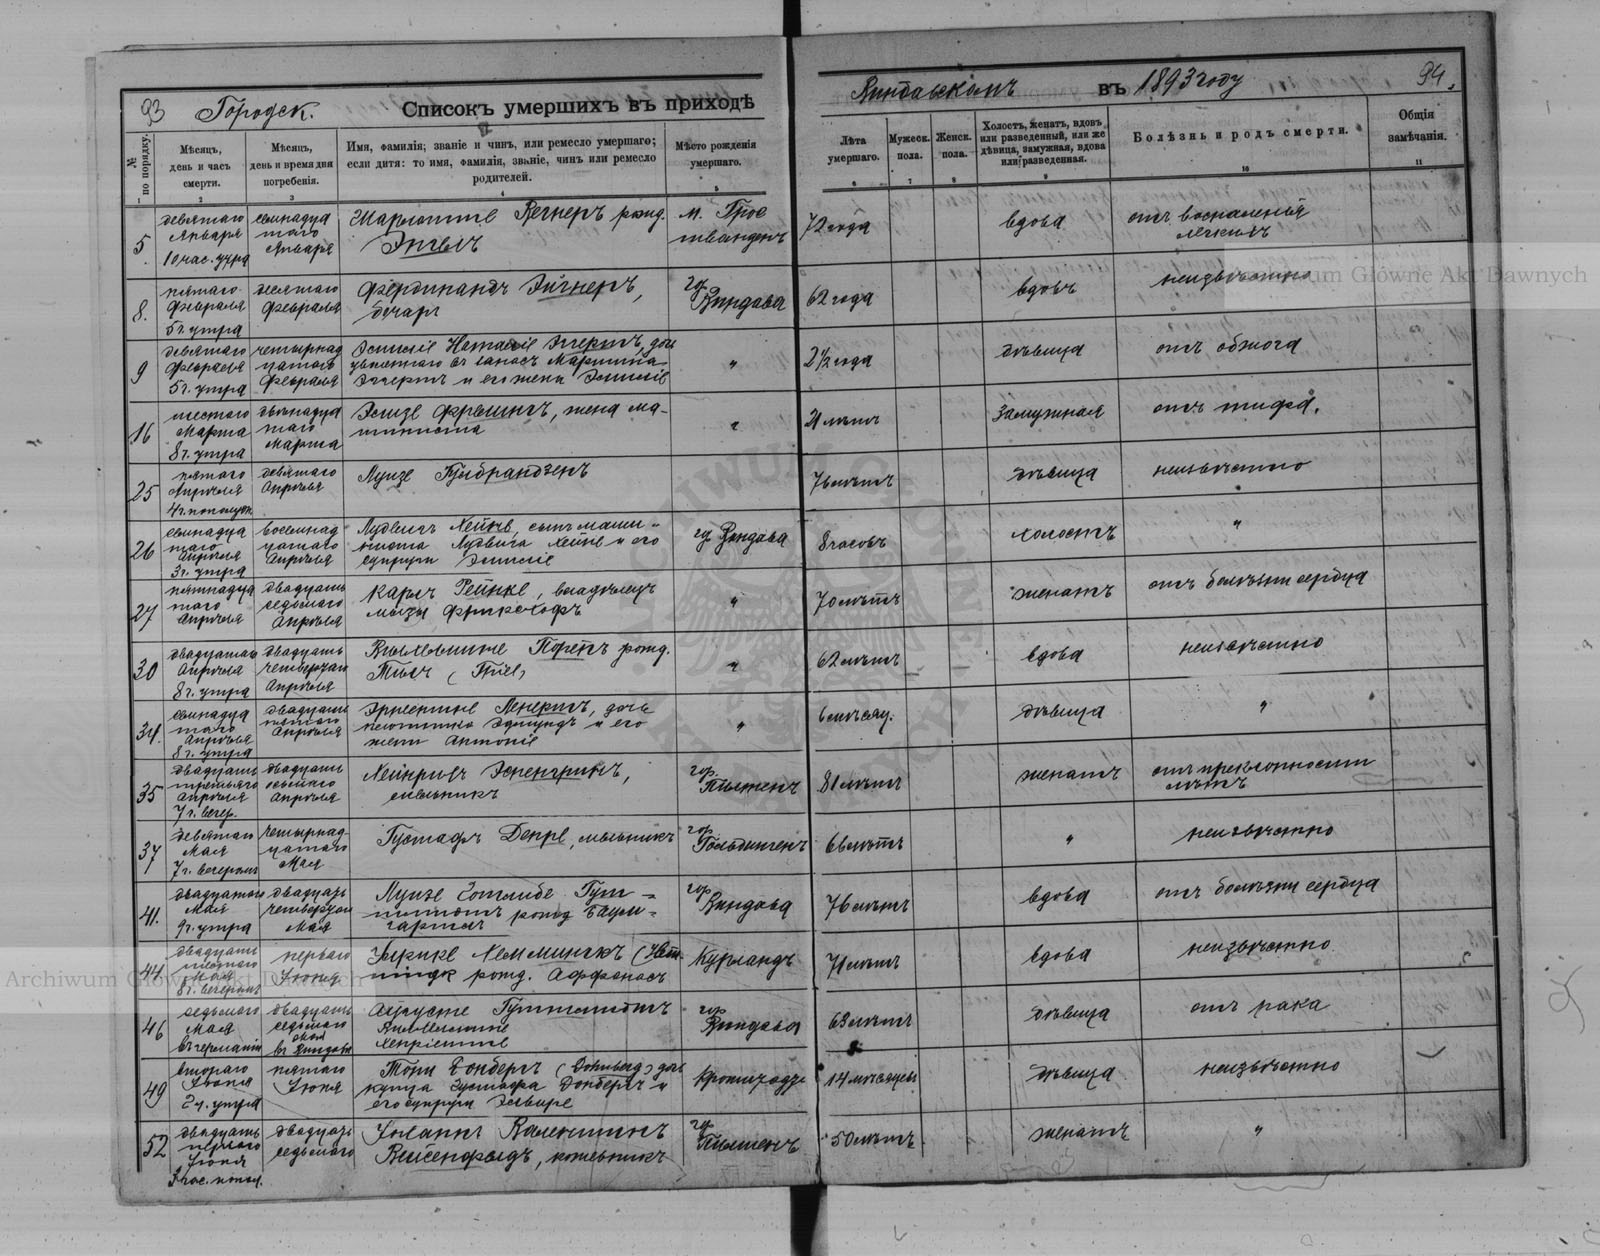 93 Городск. Списокъ умершихъ въ приходѣ Виндавскомъ въ 1893 году 94.
№ по порядку.
Мѣсяцъ, день и часъ смерти.
Мѣсяцъ, день и время дня погребенія.
Имя, фамилія; званіе и чинъ, или ремесло умершаго;
если дитя: то имя, фамилія, званіе, чинъ или ремесло
родителей.
Мѣсто рожденія умершаго.
Лѣта умершаго.
Мужеск. пола.
Женск. пола.
Холостъ, женатъ, вдовъ
или разведенный, или же
дѣвица, замужная, вдова
или разведенная.
Болѣзнь и родъ смерти.
Общія замѣчанія.
1 2 3 4 5 6 7 8 9 10 11
5. девятаго Января 10 час. утра
семнадца таго Января
Шарлотте Вегнеръ рожд.
м. Грос
72 года
вдова
отъ воспаленья легкихъ
8. пятаго Февраля 5 ч. утра
десятаго Февраля
Фердинандъ Эйгнеръ,
гор. Виндава
62 года
вдовъ
неизвѣстно
9 девятаго Февраля 5 ч. утра
четырнад цатаго Февраля
Эмиліе Наталіе Эггертъ, доч
Эггертъ и его жены Эмиліе
"
2 1/2 года
дѣвица
отъ обжога
16 шестаго Марта 8 ч. утра
двѣнадца таго Марта
Элизе Фрейшигъ, жена ма-
шиниста
"
21 лѣтъ
замужная
отъ тифа.
25 пятаго Апрѣля 4 ч. пополуд.
девятаго Апрѣля
Луизе Гульбрандзенъ
76 лѣтъ
дѣвица
неизвѣстно
26 семнадца таго Апрѣля 3 ч. утра
восемнад цатаго Апрѣля
Лудвигъ Хейне, сынъ маши-
ниста Лудвига Хейне и его
супруги Эмиліе
гд Виндава
8 часовъ
холостъ
"
27 пятнадца таго Апрѣля
двадцать седьмаго Апрѣля
Карлъ Рейнке, владѣлецъ
мызы
"
70 лѣтъ
женатъ
отъ болѣзни сердца
30 двадцатаго Апрѣля 8 ч. утра
двадцать четвертаго Апрѣля
Вильгельмине рожд.
"
62 лѣтъ
вдова
неизвѣстно
34. семнадца таго Апрѣля 8 ч. утра
двадцать пятаго Апрѣля
Эрнестине Ленертъ, дочь
плотника Эдмундъ и его
жены Антоніе
"
6 мѣсяц.
дѣвица
"
35 двадцать третьяго Апрѣля 7 ч. вечер.
двадцать осьмаго Апрѣля
Хейнрихъ Эспенгринъ,
мельникъ
гор. Пильтенъ
81 лѣтъ
женатъ
отъ преклонности лѣтъ
37 девятаго Мая 7 ч. вечеромъ
четырнад- цатаго Мая
Густафъ Деппе, мыльникъ
гор. Гольдингенъ
66 лѣтъ
"
неизвѣстно
41. двадцатаго Мая 9 ч. утра
двадцать четвертаго Мая
Луизе Готлибе Гут-
шмидтъ рожд Баум-
гартъ
гор Виндава
76 лѣтъ
вдова
отъ болѣзни сердца
44. двадцать шестаго Мая 8 ч. вечеромъ
перваго Іюня
рожд. Аффанасъ
Курландъ
71 лѣтъ
вдова
неизвѣстно
46 седьмаго Мая въ Германіи
двадцать седьмаго въ Виндавѣ
Аугусте Гутшмидтъ
Вильгельмине
Хенріетте
гор Виндава
63 лѣтъ
дѣвица
отъ рака
49 втораго Іюня 2 ч. утра
пятаго Іюня
Тони Донбергъ (Dohnberg) дочь
купца Густафа Донбергъ и
его супруги Эльвире
14 мѣсяцевъ
дѣвица
неизвѣстно
52 двадцать перваго Іюня
двадцать седьмаго
Іоганнъ Валентинъ
Вейсенфельдъ, кожевникъ
гор Пильтенъ
50 лѣтъ
женатъ
"
Archiwum Główne Akt Dawnych
Archiwum Główne Akt Dawnych